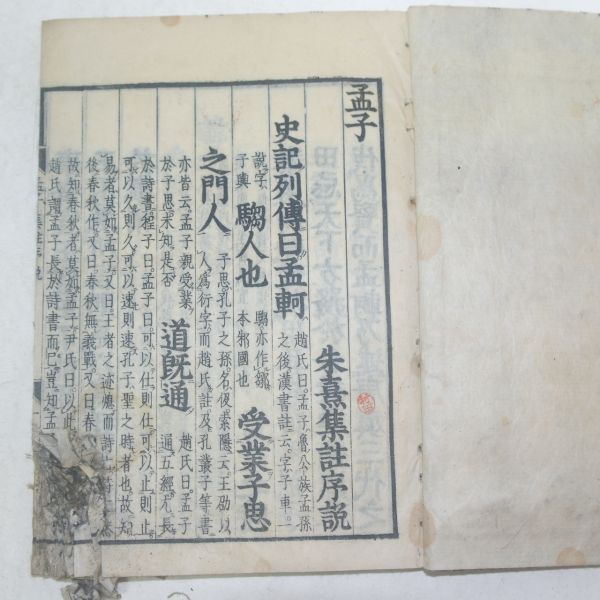 孟子
朱熹集註序說
史記列傳曰孟軻 趙氏曰孟子魯公族孟孫之後漢書註云字子車一
說字子輿 騶人也 騶亦作鄒本邾國也 受業子思
之門人 子思孔子之孫名伋索隱云王劭以人爲衍字而趙氏註及孔叢子等書
亦皆云孟子親受業於子思未知是否 道旣通 趙氏曰孟子通五經尤長
於詩書程子曰孟子曰可以仕則仕可以止則止
可以久則久可以速則速孔子聖之時者也故知
易者莫如孟子又曰王者之迹熄而詩亡詩亡然
後春秋作又曰春秋無義戰又曰春
故知春秋者莫如孟子尹氏曰以此
趙氏謂孟子長於詩書而已豈知孟